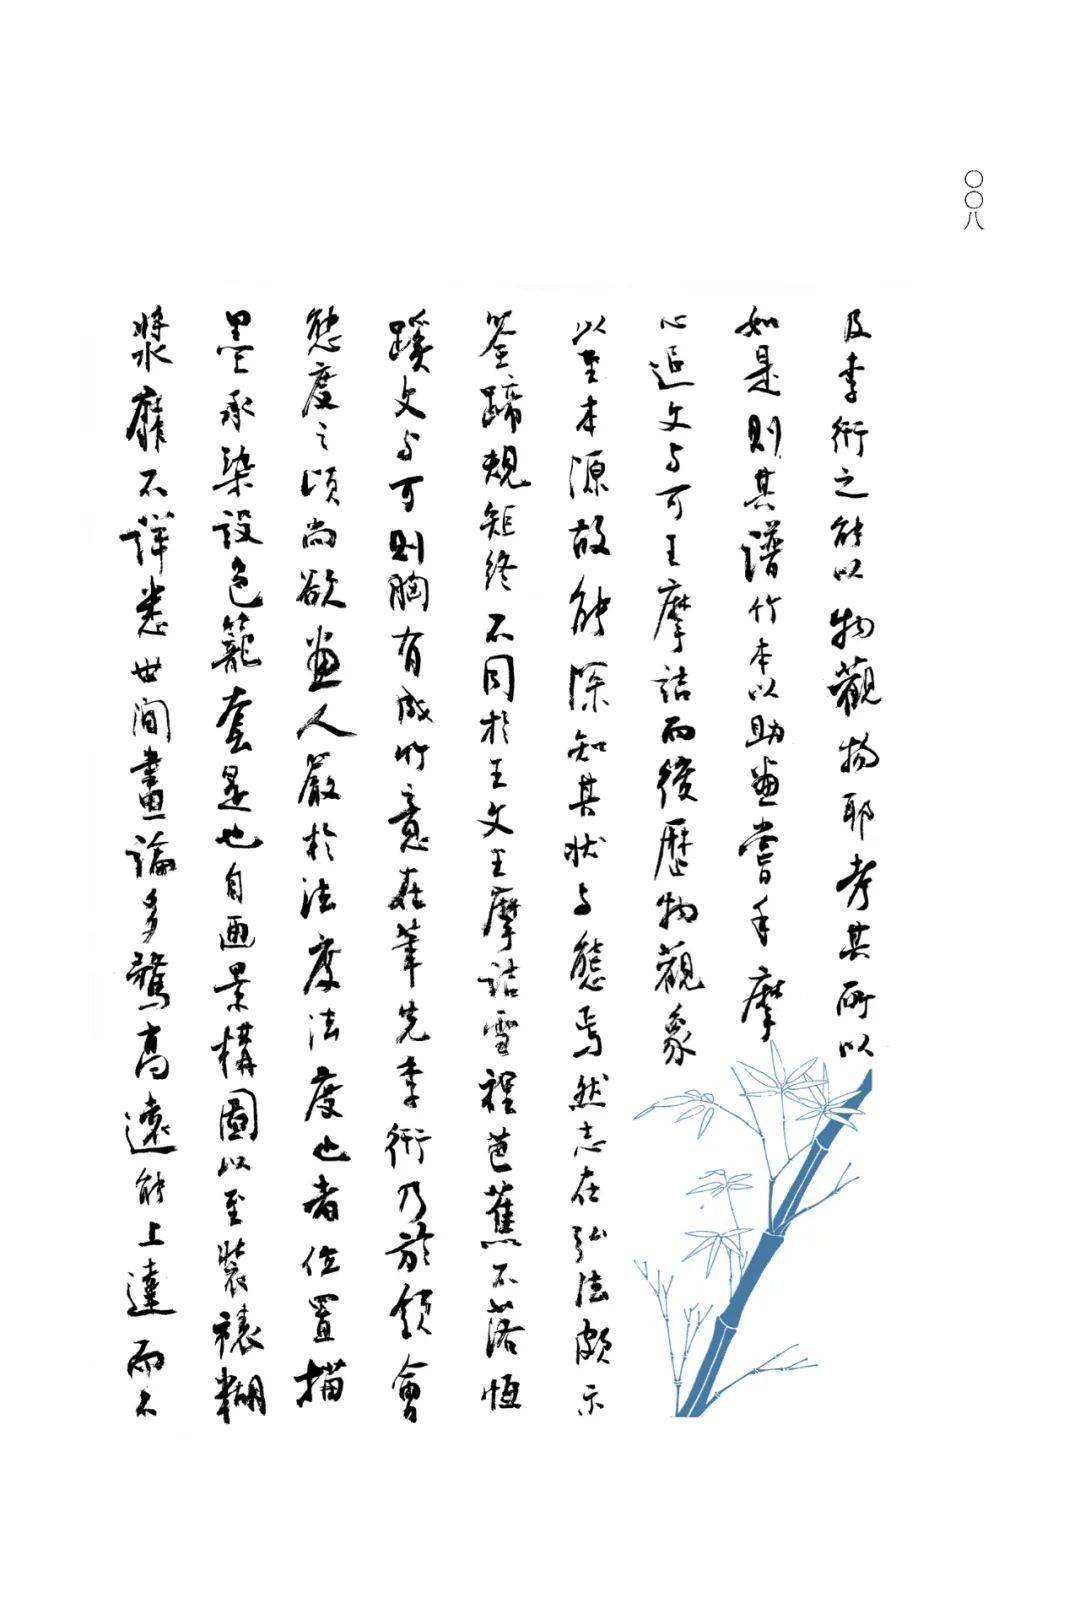 〇〇八
及李衎之能以物觀物耶考其所以
如是則其譜竹本以助畫嘗手摩
心追文与可王摩詰而後歷物觀象
以至本源故能深知其狀与態焉然志在弘法頗示
筌蹄規矩終不同於王文王摩詰雪裡芭蕉不落恆
蹊文与可則胸有成竹意在筆先李衎乃於領會
態度之頃尚欲畫人嚴於法度法度也者位置描
墨承染設色籠套是也自景構圖以至裝裱糊
漿靡不詳悉世間畫論多騖高遠能上達而不